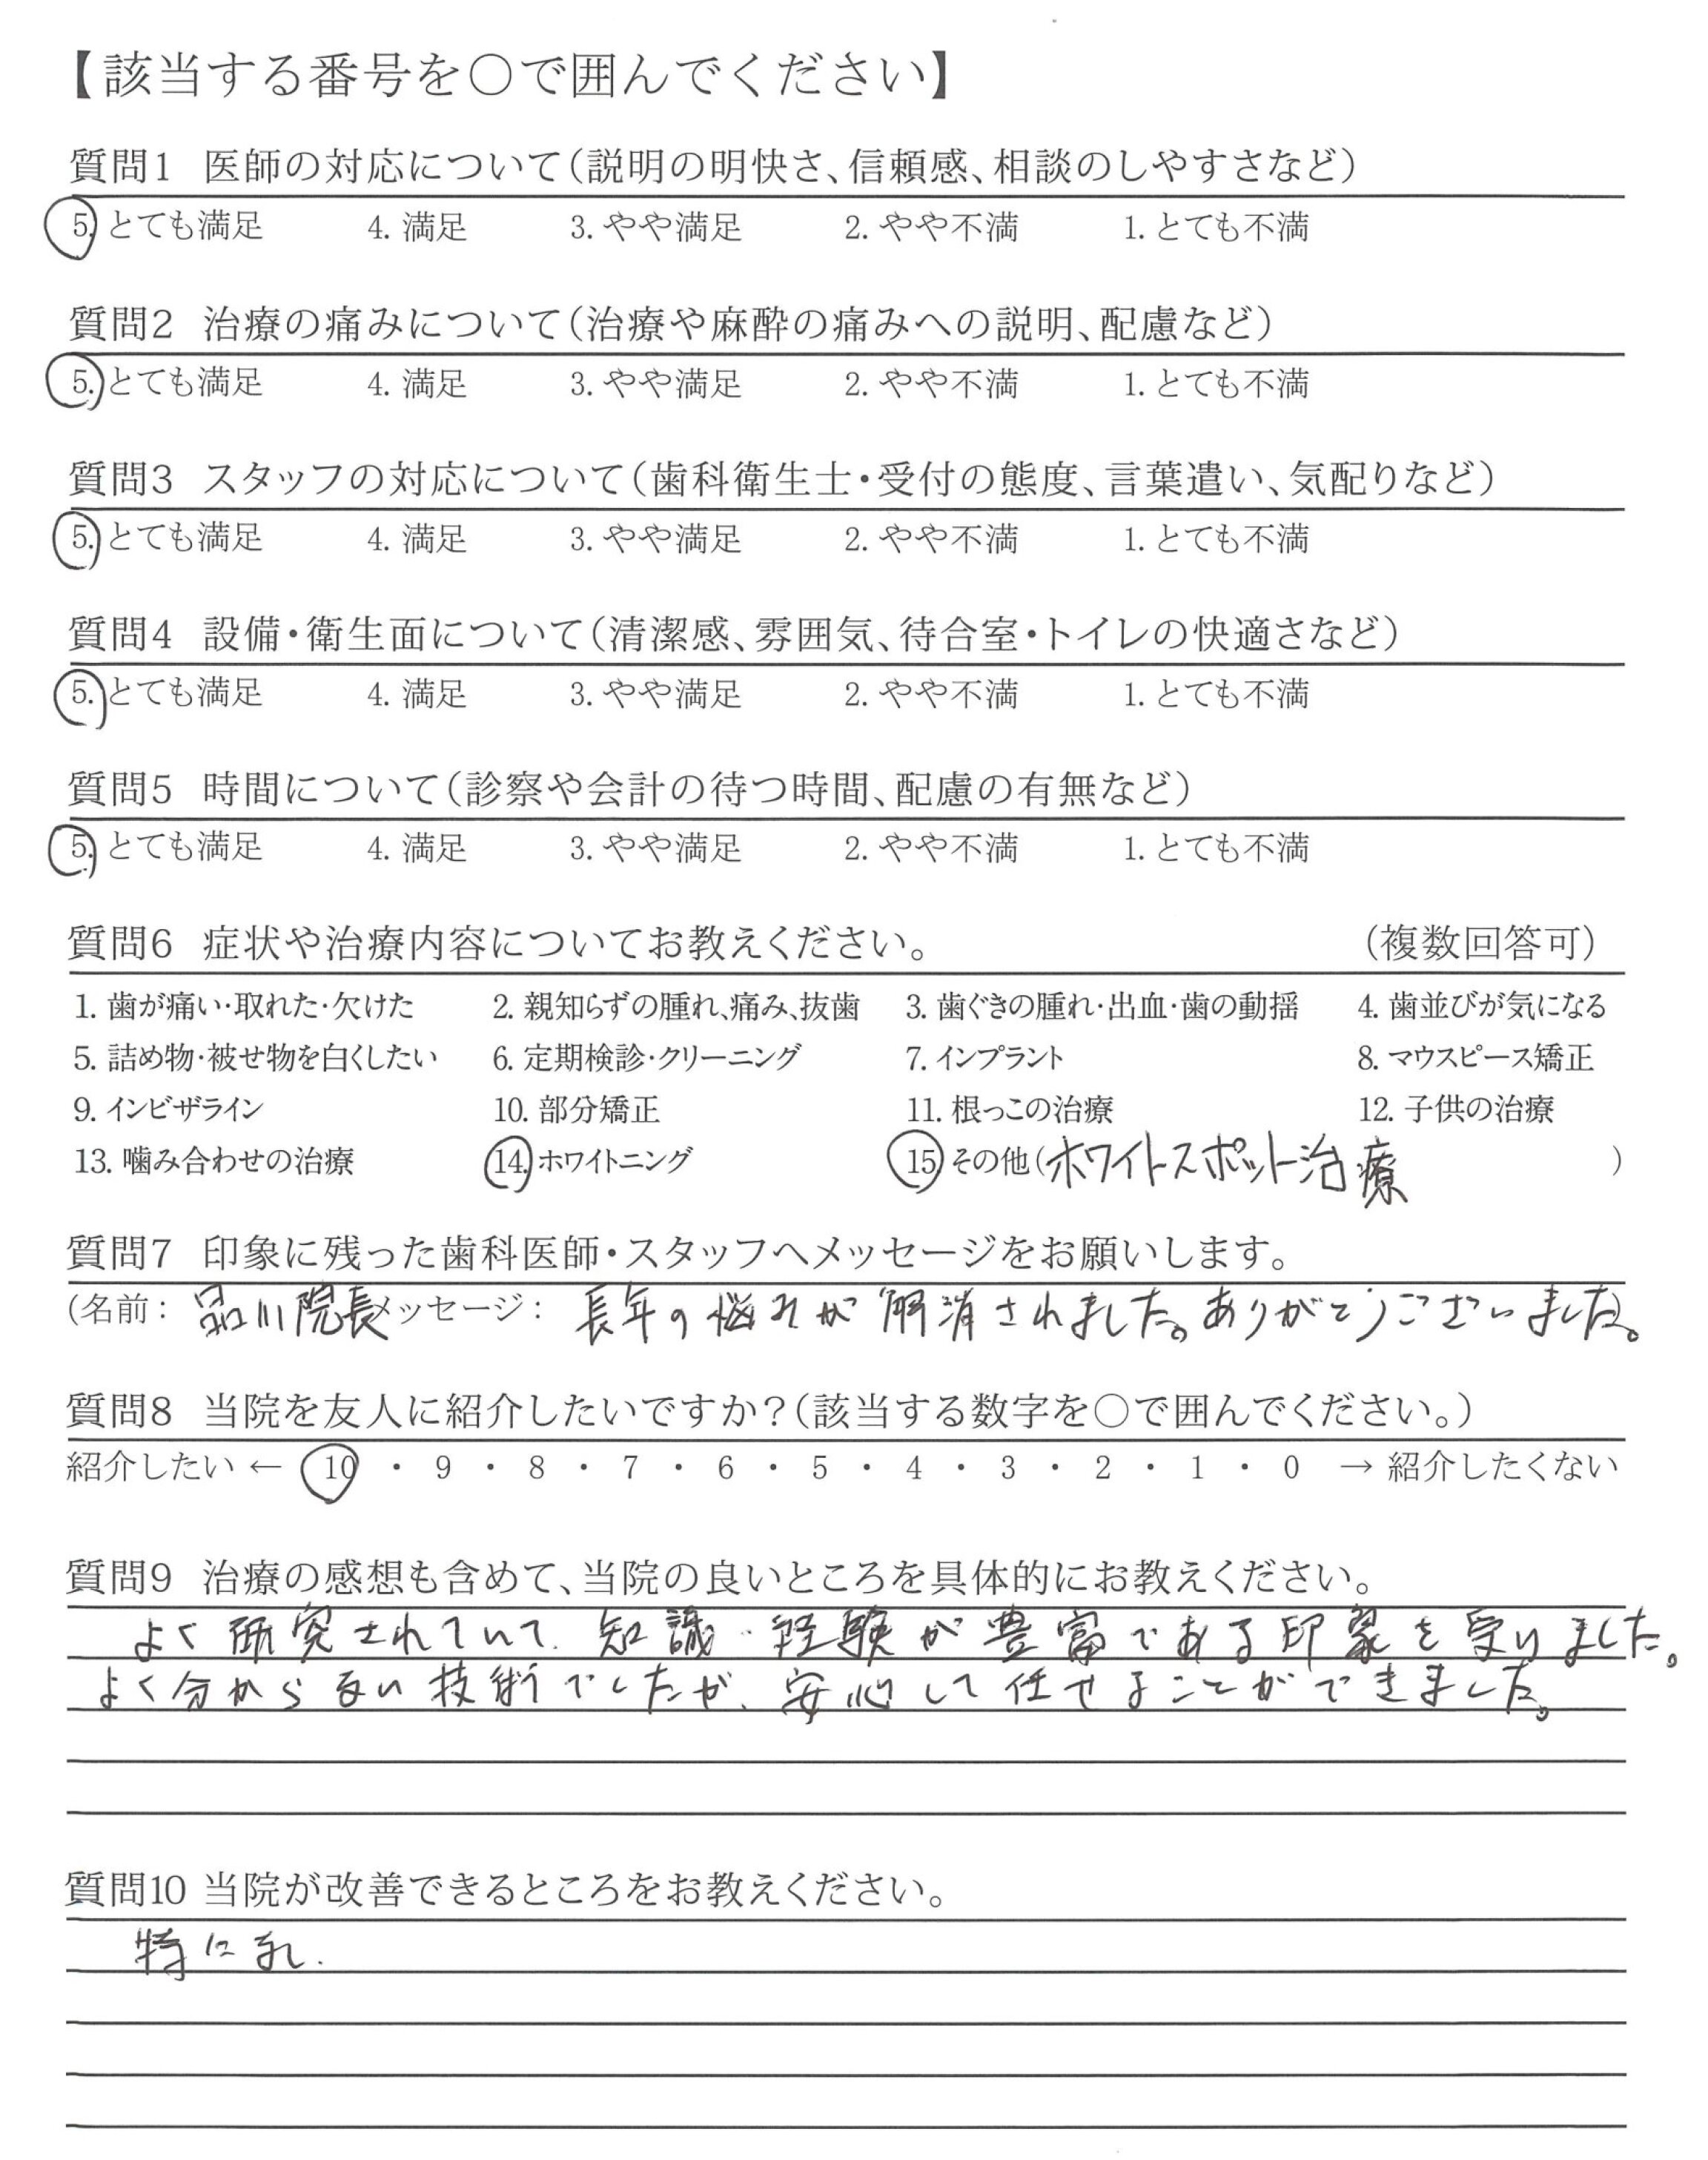 【該当する番号を○で囲んでください】
質問1 医師の対応について(説明の明快さ、信頼感、相談のしやすさなど)
5. とても満足 4. 満足 3. やや満足 2. やや不満 1. とても不満
質問2 治療の痛みについて(治療や麻酔の痛みへの説明、配慮など)
5. とても満足 4. 満足 3. やや満足 2. やや不満 1. とても不満
質問3 スタッフの対応について(歯科衛生士・受付の態度、言葉遣い、気配りなど)
5. とても満足 4. 満足 3. やや満足 2. やや不満 1. とても不満
質問4 設備・衛生面について(清潔感、雰囲気、待合室・トイレの快適さなど)
5. とても満足 4. 満足 3. やや満足 2. やや不満 1. とても不満
質問5 時間について(診察や会計の待つ時間、配慮の有無など)
5. とても満足 4. 満足 3. やや満足 2. やや不満 1. とても不満
質問6 症状や治療内容についてお教えください。 (複数回答可)
1. 歯が痛い・取れた・欠けた 2. 親知らずの腫れ、痛み、抜歯 3. 歯ぐきの腫れ・出血・歯の動揺 4. 歯並びが気になる
5. 詰め物・被せ物を白くしたい 6. 定期検診・クリーニング 7. インプラント 8. マウスピース矯正
9. インビザライン 10. 部分矯正 11. 根っこの治療 12. 子供の治療
13. 噛み合わせの治療 14. ホワイトニング 15. その他(ホワイトスポット治療 )
質問7 印象に残った歯科医師・スタッフへメッセージをお願いします。
(名前: 品川院長 メッセージ: 長年の悩みが解消されました。ありがとうございました。
質問8 当院を友人に紹介したいですか?(該当する数字を○で囲んでください。)
紹介したい ← 10 ・ 9 ・ 8 ・ 7 ・ 6 ・ 5 ・ 4 ・ 3 ・ 2 ・ 1 ・ 0 → 紹介したくない
質問9 治療の感想も含めて、当院の良いところを具体的にお教えください。
よく研究されていて、知識・経験が豊富である印象を受けました。
よく分からない技術でしたが、安心して任せることができました。
質問10 当院が改善できるところをお教えください。
特に無し.